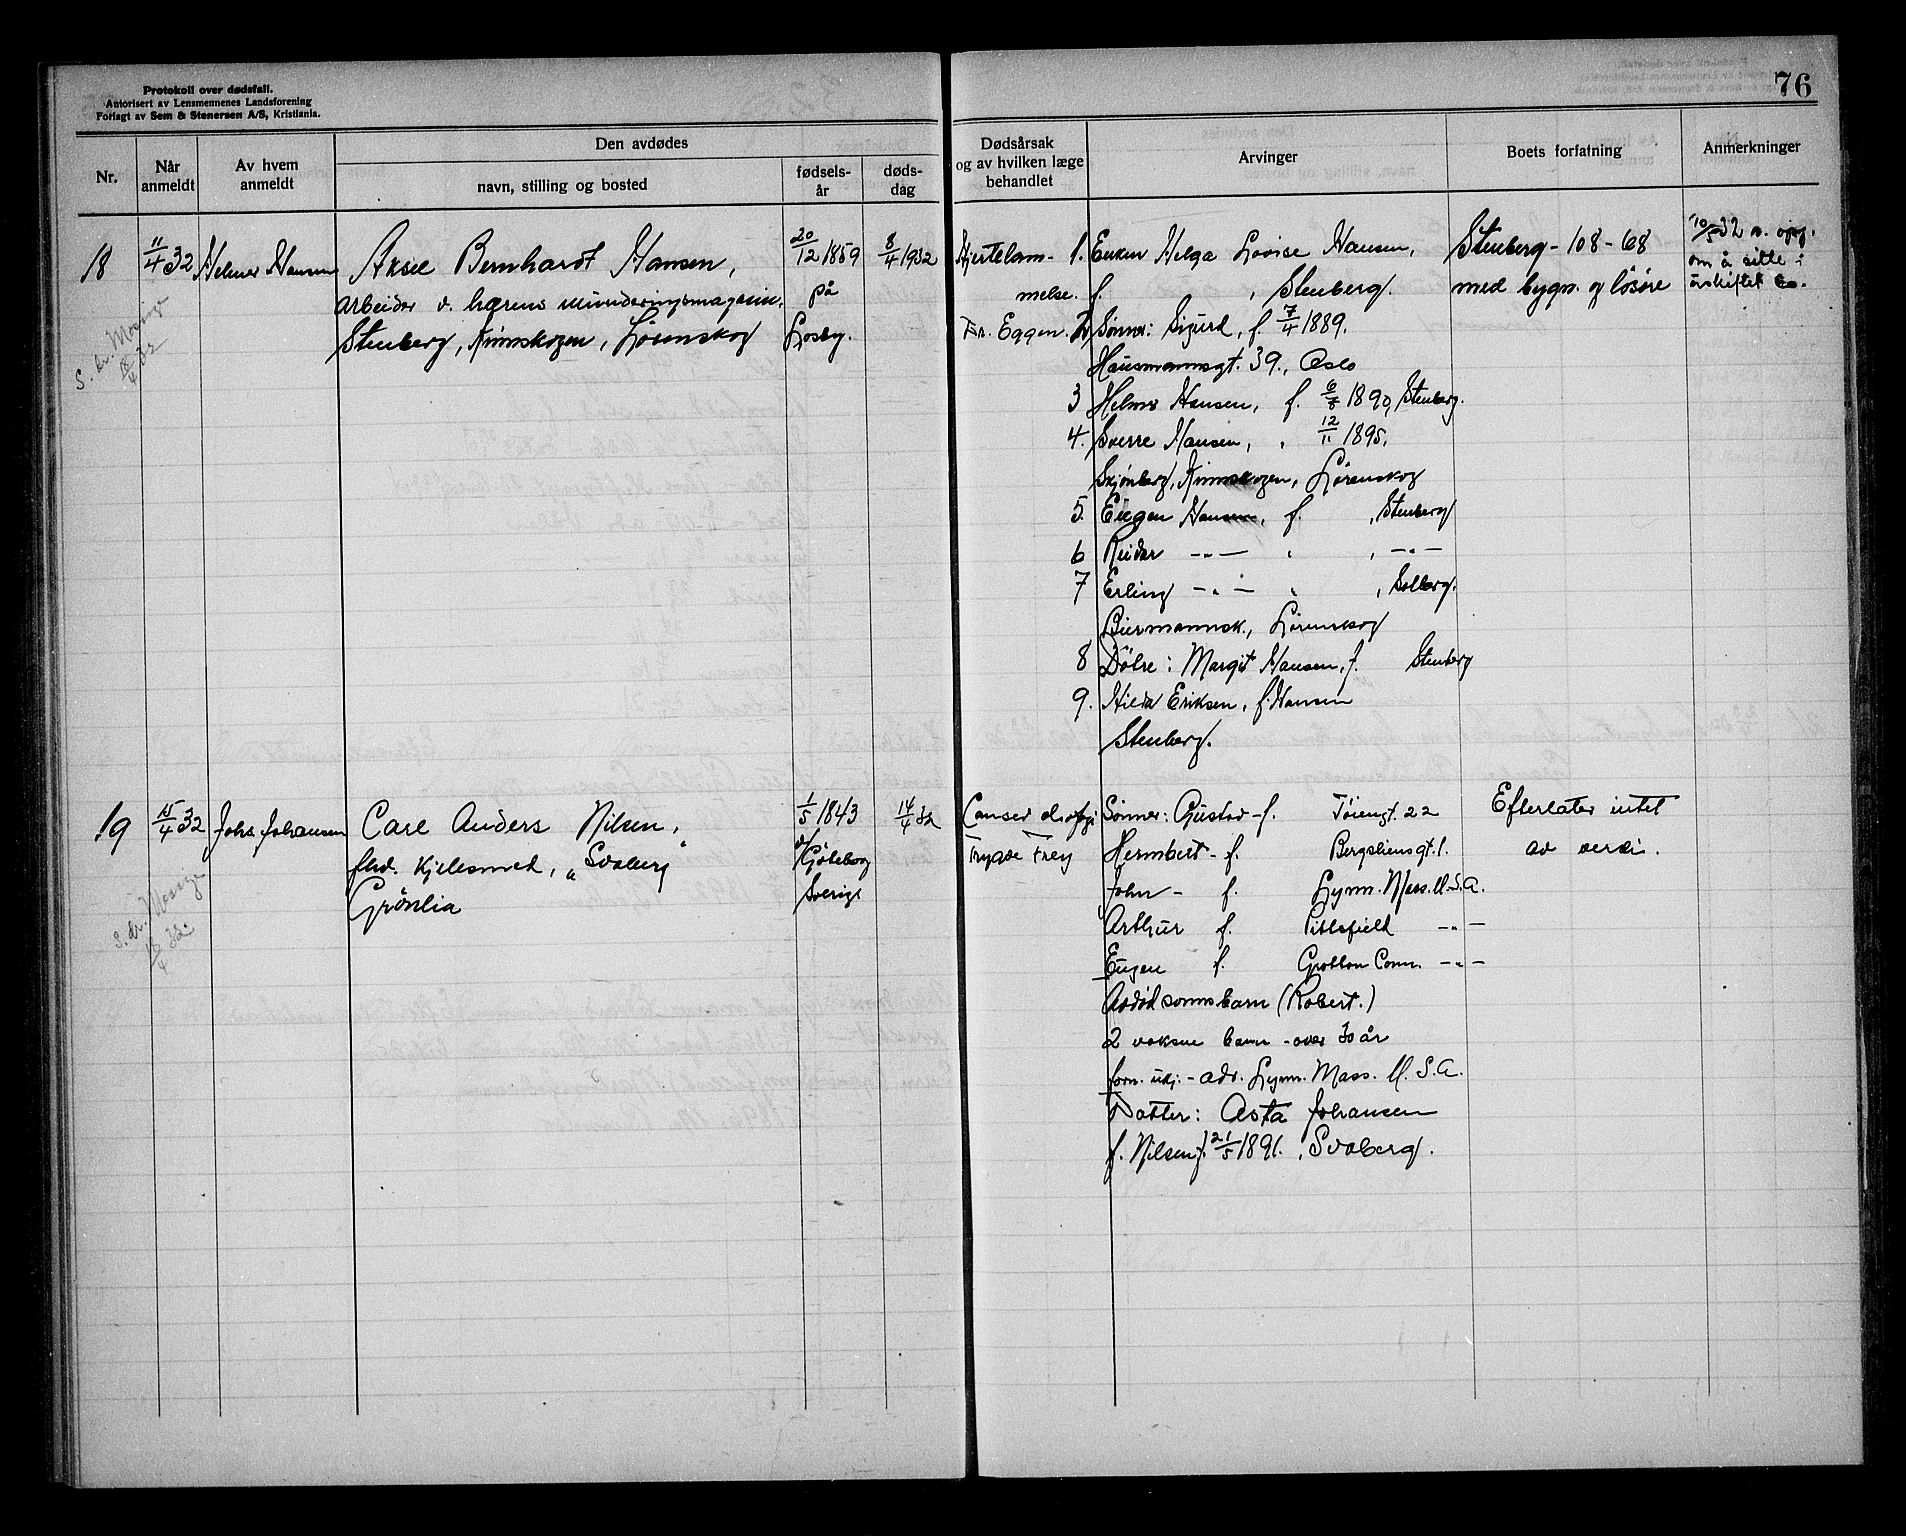 Protokoll over dødsfall.
Autorisert av Lensmennenes Landsforening
Forlagt av Sem & Stenersen A/S, Kristiania.
76
Nr.
Når anmeldt
Av hvem anmeldt
Den avdødes
navn, stilling og bosted
fødsels-år
døds-dag
Dødsårsak og av hvilken læge behandlet
Arvinger
Boets forfatning
Anmerkninger
18
11/4 32
Helmer Hansen
Aksel Bernhardt Hansen,
arbeider v. hærens munderingsmagasin.
Stenberg, Kirinskogen, Lørenskog
20/12 1859
på
Losby.
8/4 1932
Hjertelam-
melse.
Dr. Eggen.
1. Enken Helga Lovise Hansen,
f. , Stenberg.
2. Sønner: Sigurd, f. 7/4 1889.
Hausmannsgt. 39., Oslo
3 Helmer Hansen, f. 6/8 1890, Stenberg.
4. Sverre Hansen, " 12/11 1895.
Skjønberg, Kirinskogen, Lørenskog
5. Eugen Hansen, f. , Stenberg
6 Reidar -"- " , -"-
7 Erling -"- " , Solberg.
Biermannsk., Lørenskog
8 Døtre: Margit Hansen, f. Stenberg
9. Hilda Eriksen, f. Hansen
Stenberg.
Stenberg - 108 - 68
med bygn. og løsøre
10/5 32 n. opg.
om å sitte i
uskiftet bo.
S. dr. Mosing
18/4 32
19
15/4 32
Johs Johansen
Carl Anders Nilsen,
fhv. kjelesmed, "Svaberg"
Grønlia
1/5 1843
v/ Gøteborg
Sverige
14/4 32
Cancer
Trygve Frey
Sønner: Gustav - f. Tøiengt. 22
Hermbert - f. Bergsliensgt. 1.
John - f. Lynn. Mass. U.S.A.
Arthur f. Pittsfield -"-
Eugen f. Grotton Conn. -"-
Avdød sønns barn (Robert.)
2 voksne barn - over 30 år
forn. ukj. - adr. Lynn. Mass. U.S.A.
Datter: Asta Johansen
f. Nilsen f. 21/5 1891. , Svaberg.
Efterlater intet
av verdi.
S. dr. Mosing
18/4 32